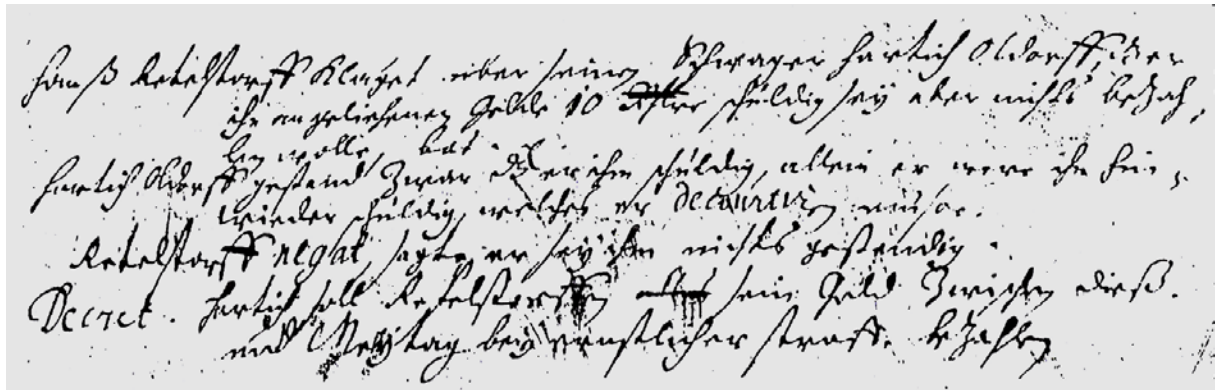 Hanß Retelstorff Klaget über seinen Schwager Hartich Oldorff, d er
ihm angeliehenen Gelde 10 schuldig sey aber nichts bezah,
len wolle, bat.
Hartich Oldorff gestund Zwar dz er ihm schuldig, allein er were ihm hin,
wieder schuldig, welches er decourtiren müste.
Retelstorff negat, sagte er sey ihm nichts geständig.
Decret. Hartich soll Retelstorffen sein Geld Zwischen dieß.
und Meytag bey ernstlicher straffe bezahlen